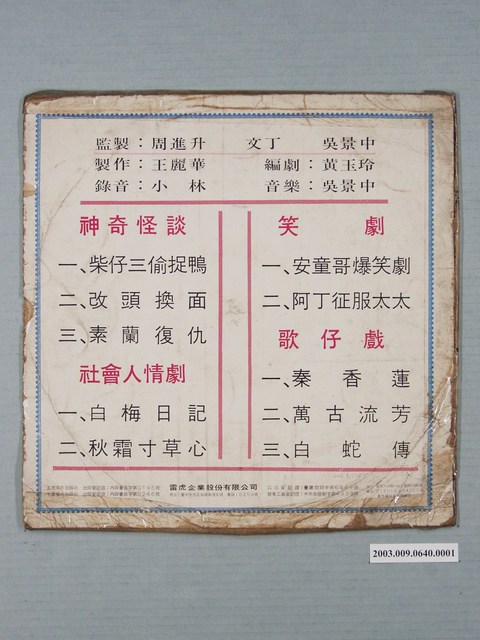 監製：周進升　文丁　吳景中
製作：王麗華　編劇：黃玉玲
錄音：小林　音樂：吳景中
神奇怪談
一、柴仔三偷捉鴨
二、改頭換面
三、素蘭復仇
社會人情劇
一、白梅日記
二、秋霜寸草心
笑劇
一、安童哥爆笑劇
二、阿丁征服太太
歌仔戲
一、秦香蓮
二、萬古流芳
三、白蛇傳
雷虎企業股份有限公司
2003.009.0640.0001